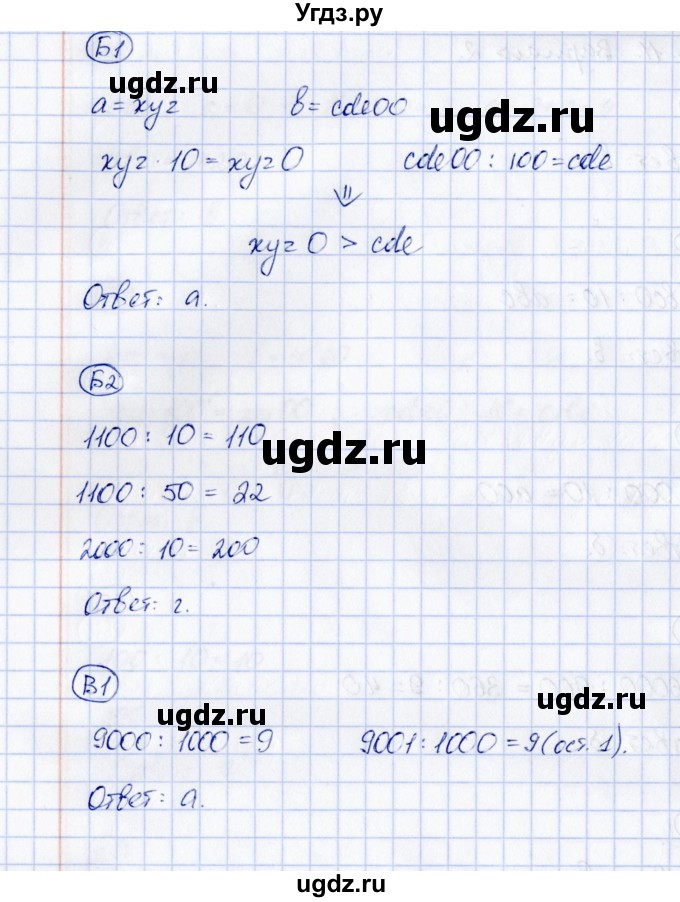 Угдз.ру
Б1
a = xyz b = cde00
ugdz.ru
xyz · 10 = xyz0 cde00 : 100 = cde
⇓
xyz0 > cde
Ответ: а.
Б2
1100 : 10 = 110
ugdz.ru
1100 : 50 = 22
2000 : 10 = 200
Ответ: г.
В1
ugdz.ru
ugdz.ru
9000 : 1000 = 9 9001 : 1000 = 9 (ост. 1).
Ответ: а.
ugdz.ru